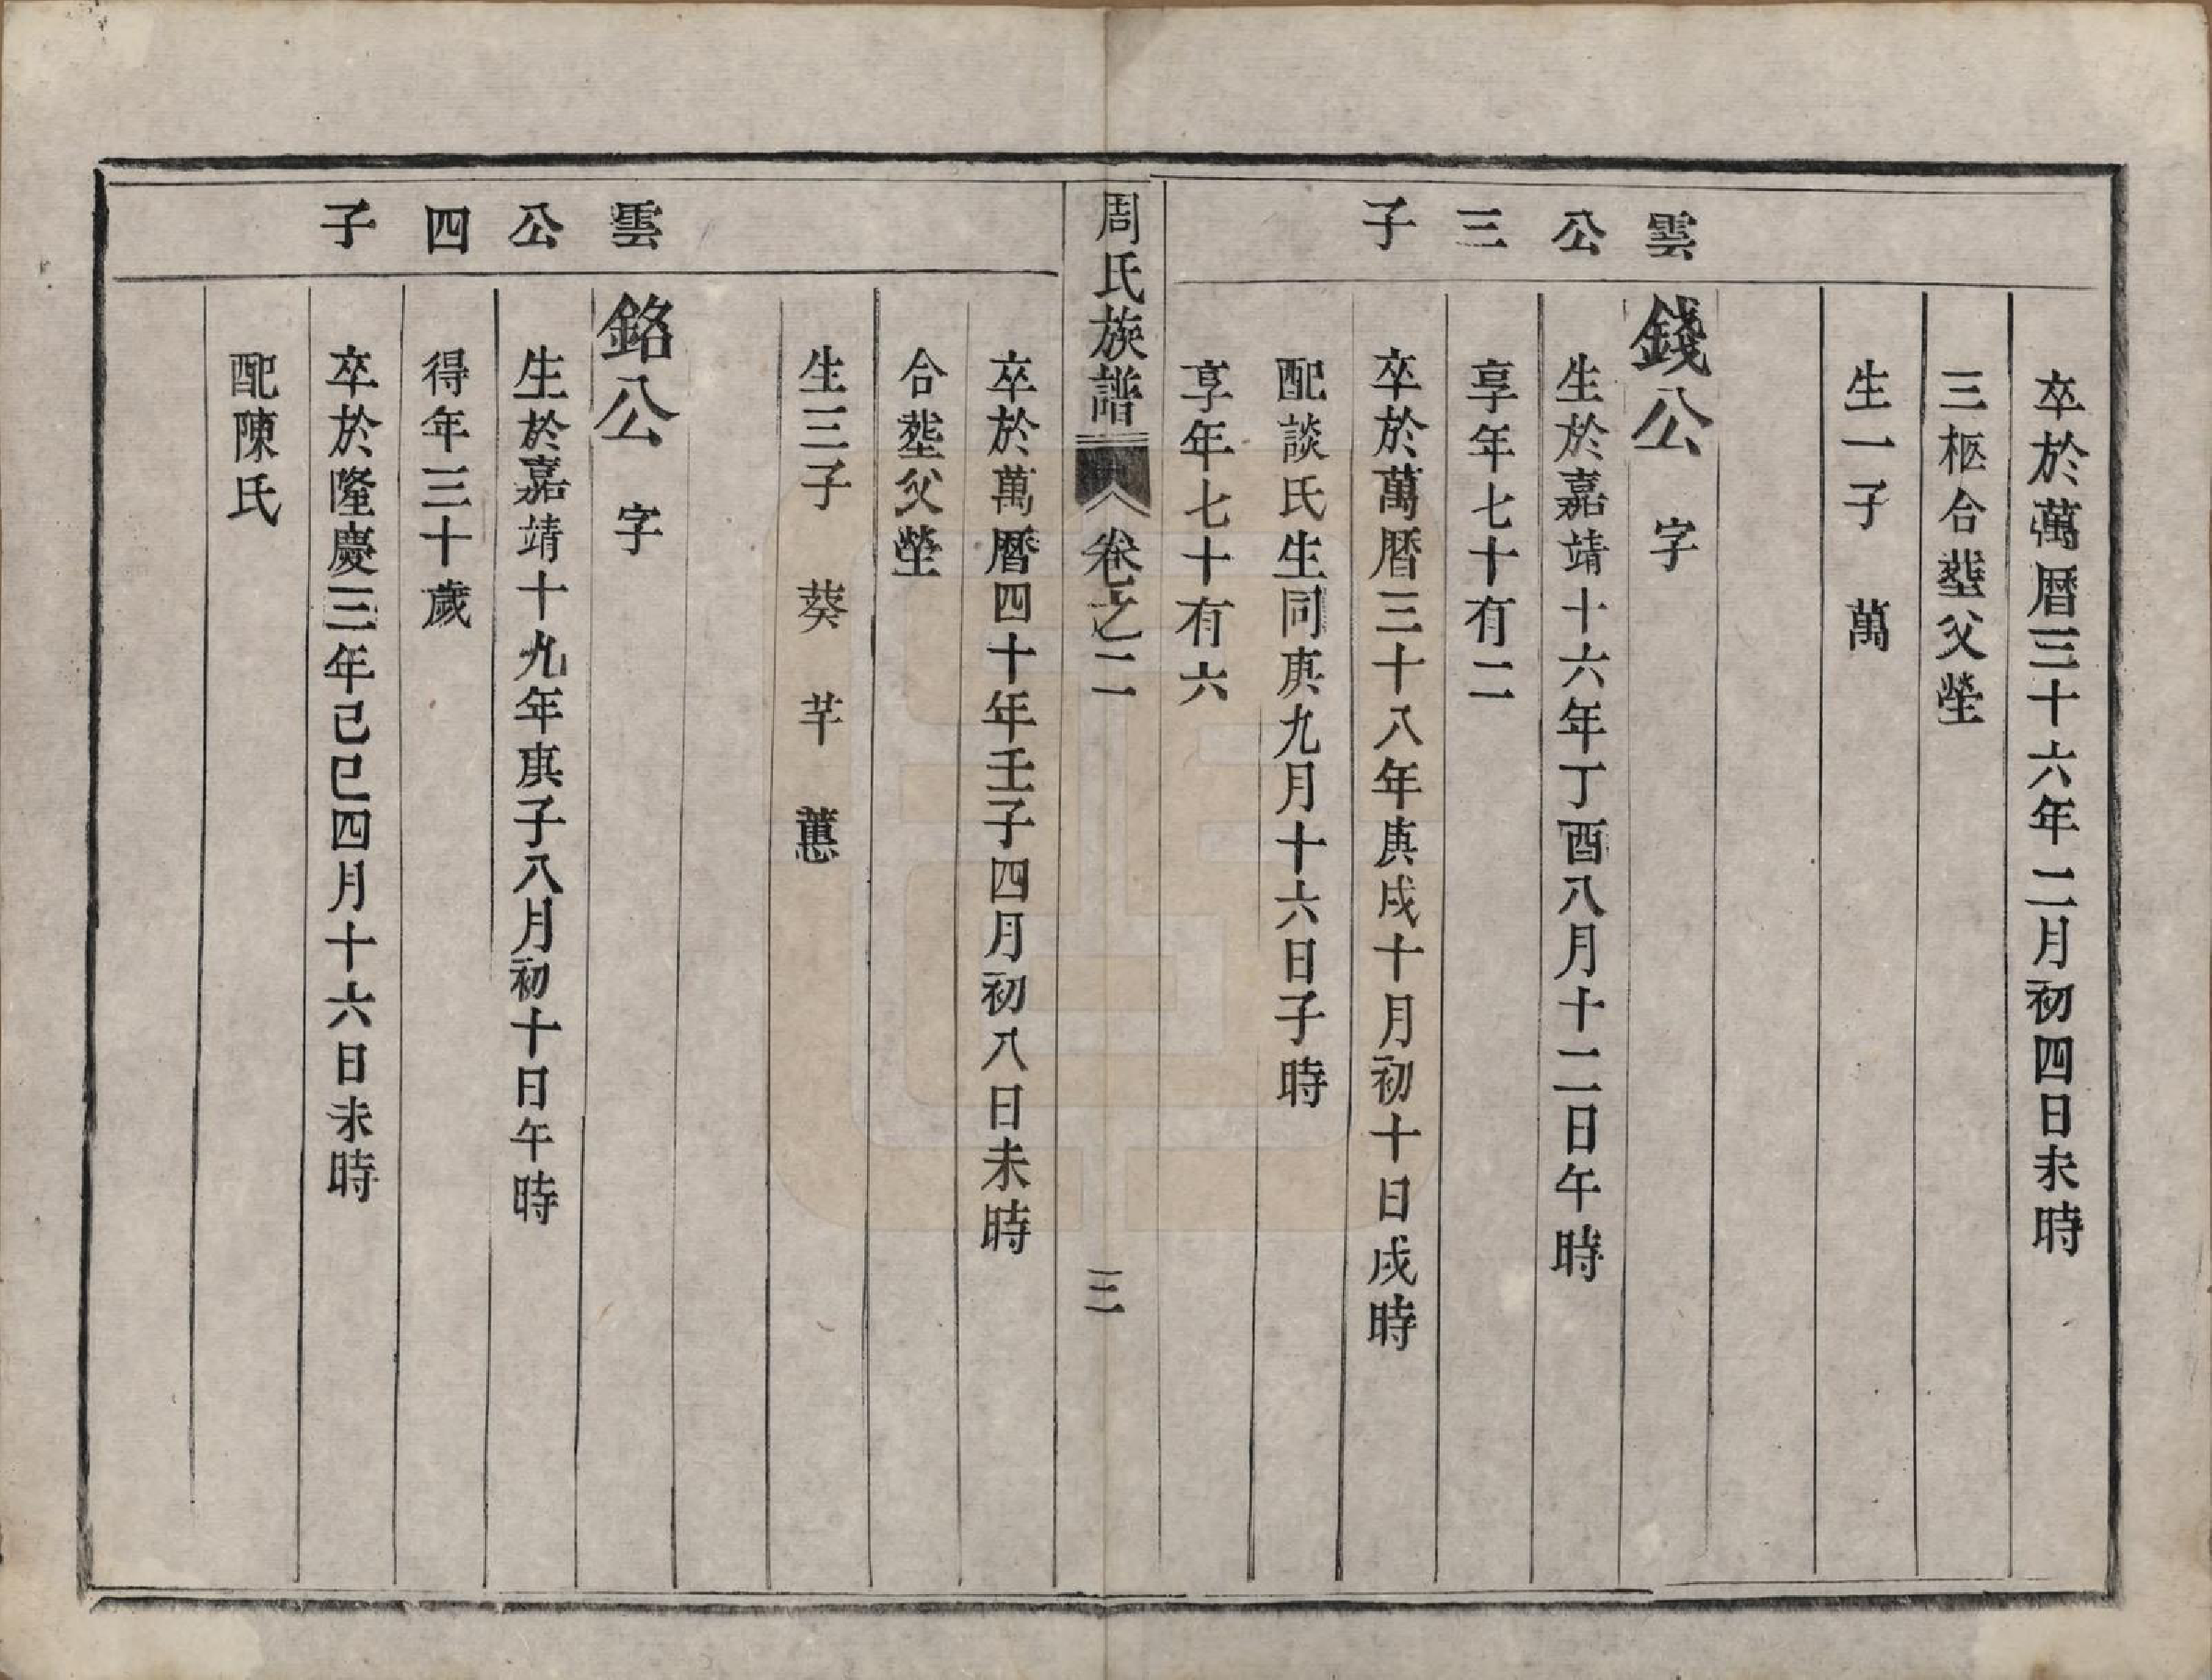 卒於萬曆三十六年二月初四日未時
三柩合塟父塋
生一子　萬
雲公三子
錢公　字
生於嘉靖十六年丁酉八月十二日午時
享年七十有二
卒於萬曆三十八年庚戌十月初十日戌時
配談氏生同庚九月十六日子時
享年七十有六
周氏族譜　卷之二　三
卒於萬曆四十年壬子四月初八日未時
合塟父塋
生三子　葵　芊　蕙
雲公四子
銘公　字
生於嘉靖十九年庚子八月初十日午時
得年三十歲
卒於隆慶三年己巳四月十六日未時
配陳氏